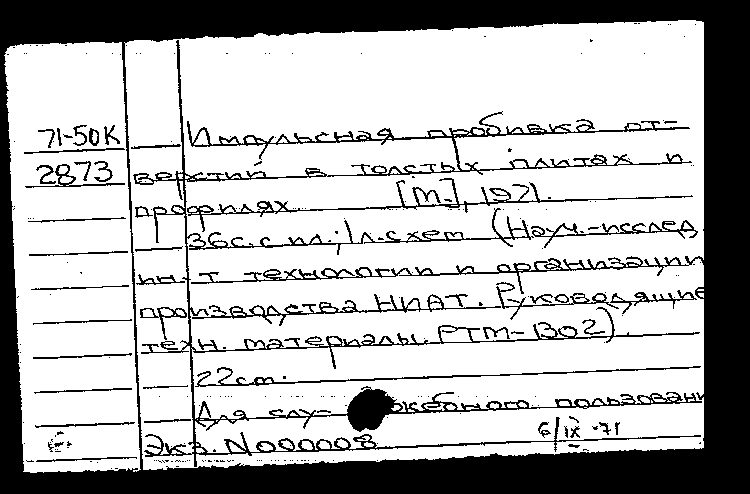 71-50К Импульсная пробивка от-
2873 верстий в толстых плитах и
профилях [М.], 1971.
36с. с ил.; 1 л. схем (Науч.-исслед.
ин-т технологии и организации
производства НИАТ. Руководящие
техн. материалы. РТМ-1302).
22см.
Для слу- жебного пользован
Экз. N000008 6/IX-71